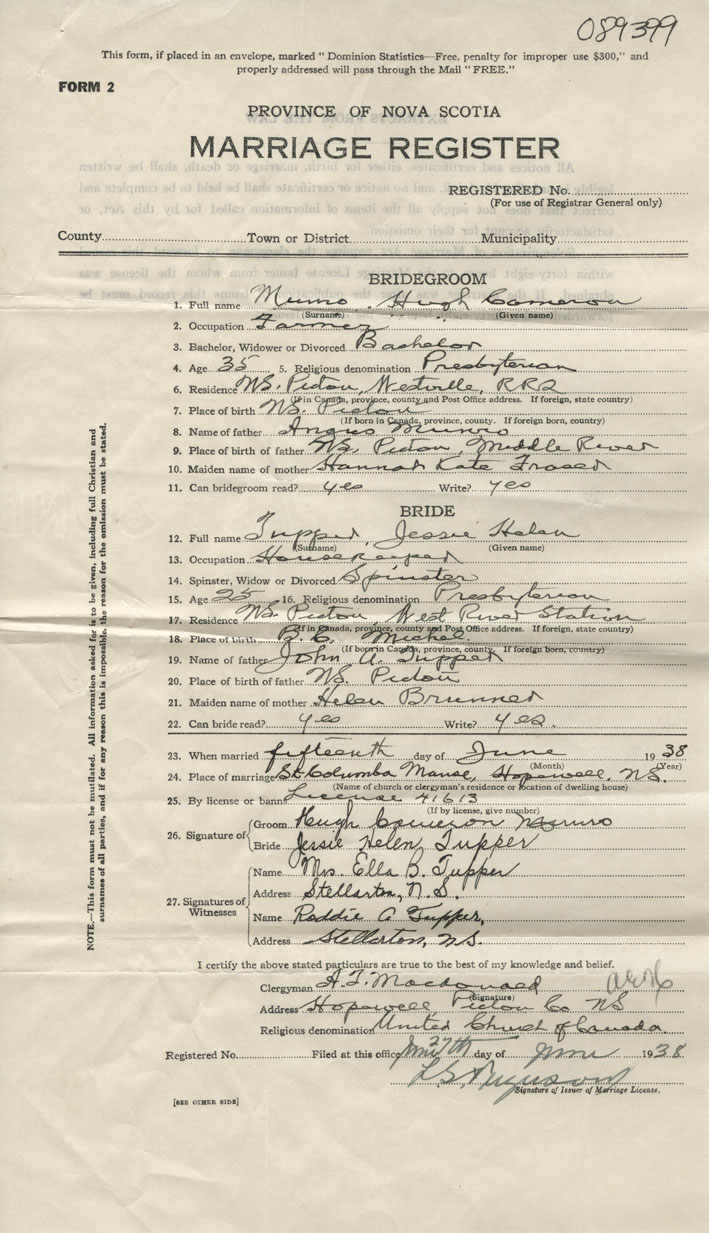 089399
This form, if placed in an envelope, marked "Dominion Statistics—Free, penalty for improper use $300," and
properly addressed will pass through the Mail "FREE."
FORM 2
PROVINCE OF NOVA SCOTIA
MARRIAGE REGISTER
REGISTERED No.
(For use of Registrar General only)
County Town or District Municipality
BRIDEGROOM
1. Full name Munro, Hugh Cameron
(Surname) (Given name)
2. Occupation Farmer
3. Bachelor, Widower or Divorced Bachelor
4. Age 35 5. Religious denomination Presbyterian
6. Residence NS. Pictou, Westville, RR2
(If in Canada, province, county and Post Office address. If foreign, state country)
7. Place of birth NS. Pictou
(If born in Canada, province, county. If foreign born, country)
8. Name of father Angus Munro
9. Place of birth of father NS. Pictou, Middle River
10. Maiden name of mother Hannah Kate Fraser
11. Can bridegroom read? yes Write? yes
BRIDE
12. Full name Tupper, Jessie Helen
(Surname) (Given name)
13. Occupation Housekeeper
14. Spinster, Widow or Divorced Spinster
15. Age 25 16. Religious denomination Presbyterian
17. Residence NS. Pictou, West River Station
(If in Canada, province, county and Post Office address. If foreign, state country)
18. Place of birth B.C. Michel
(If born in Canada, province, county. If foreign born, country)
19. Name of father John A. Tupper
20. Place of birth of father NS. Pictou
21. Maiden name of mother Helen Brunner
22. Can bride read? yes Write? yes.
23. When married fifteenth day of June 1938
(Month) (Year)
24. Place of marriage St. Columba Manse, Hopewell, NS.
(Name of church or clergyman's residence or location of dwelling house)
25. By license or banns License 41613
(If by license, give number)
26. Signature of
Groom Hugh Cameron Munro
Bride Jessie Helen Tupper
27. Signatures of Witnesses
Name Mrs. Ella B. Tupper
Address Stellarton, N.S.
Name Roddie A Tupper,
Address Stellarton, NS.
I certify the above stated particulars are true to the best of my knowledge and belief.
Clergyman A.F. Macdonald
(Signature)
Address Hopewell, Pictou Co NS
Religious denomination United Church of Canada
Registered No. Filed at this office 27th day of June 1938
L.S. Ferguson
Signature of Issuer of Marriage License.
[SEE OTHER SIDE]
NOTE.—This form must not be mutilated. All information asked for is to be given, including full Christian and
surnames of all parties, and if for any reason this is impossible, the reason for the omission must be stated.